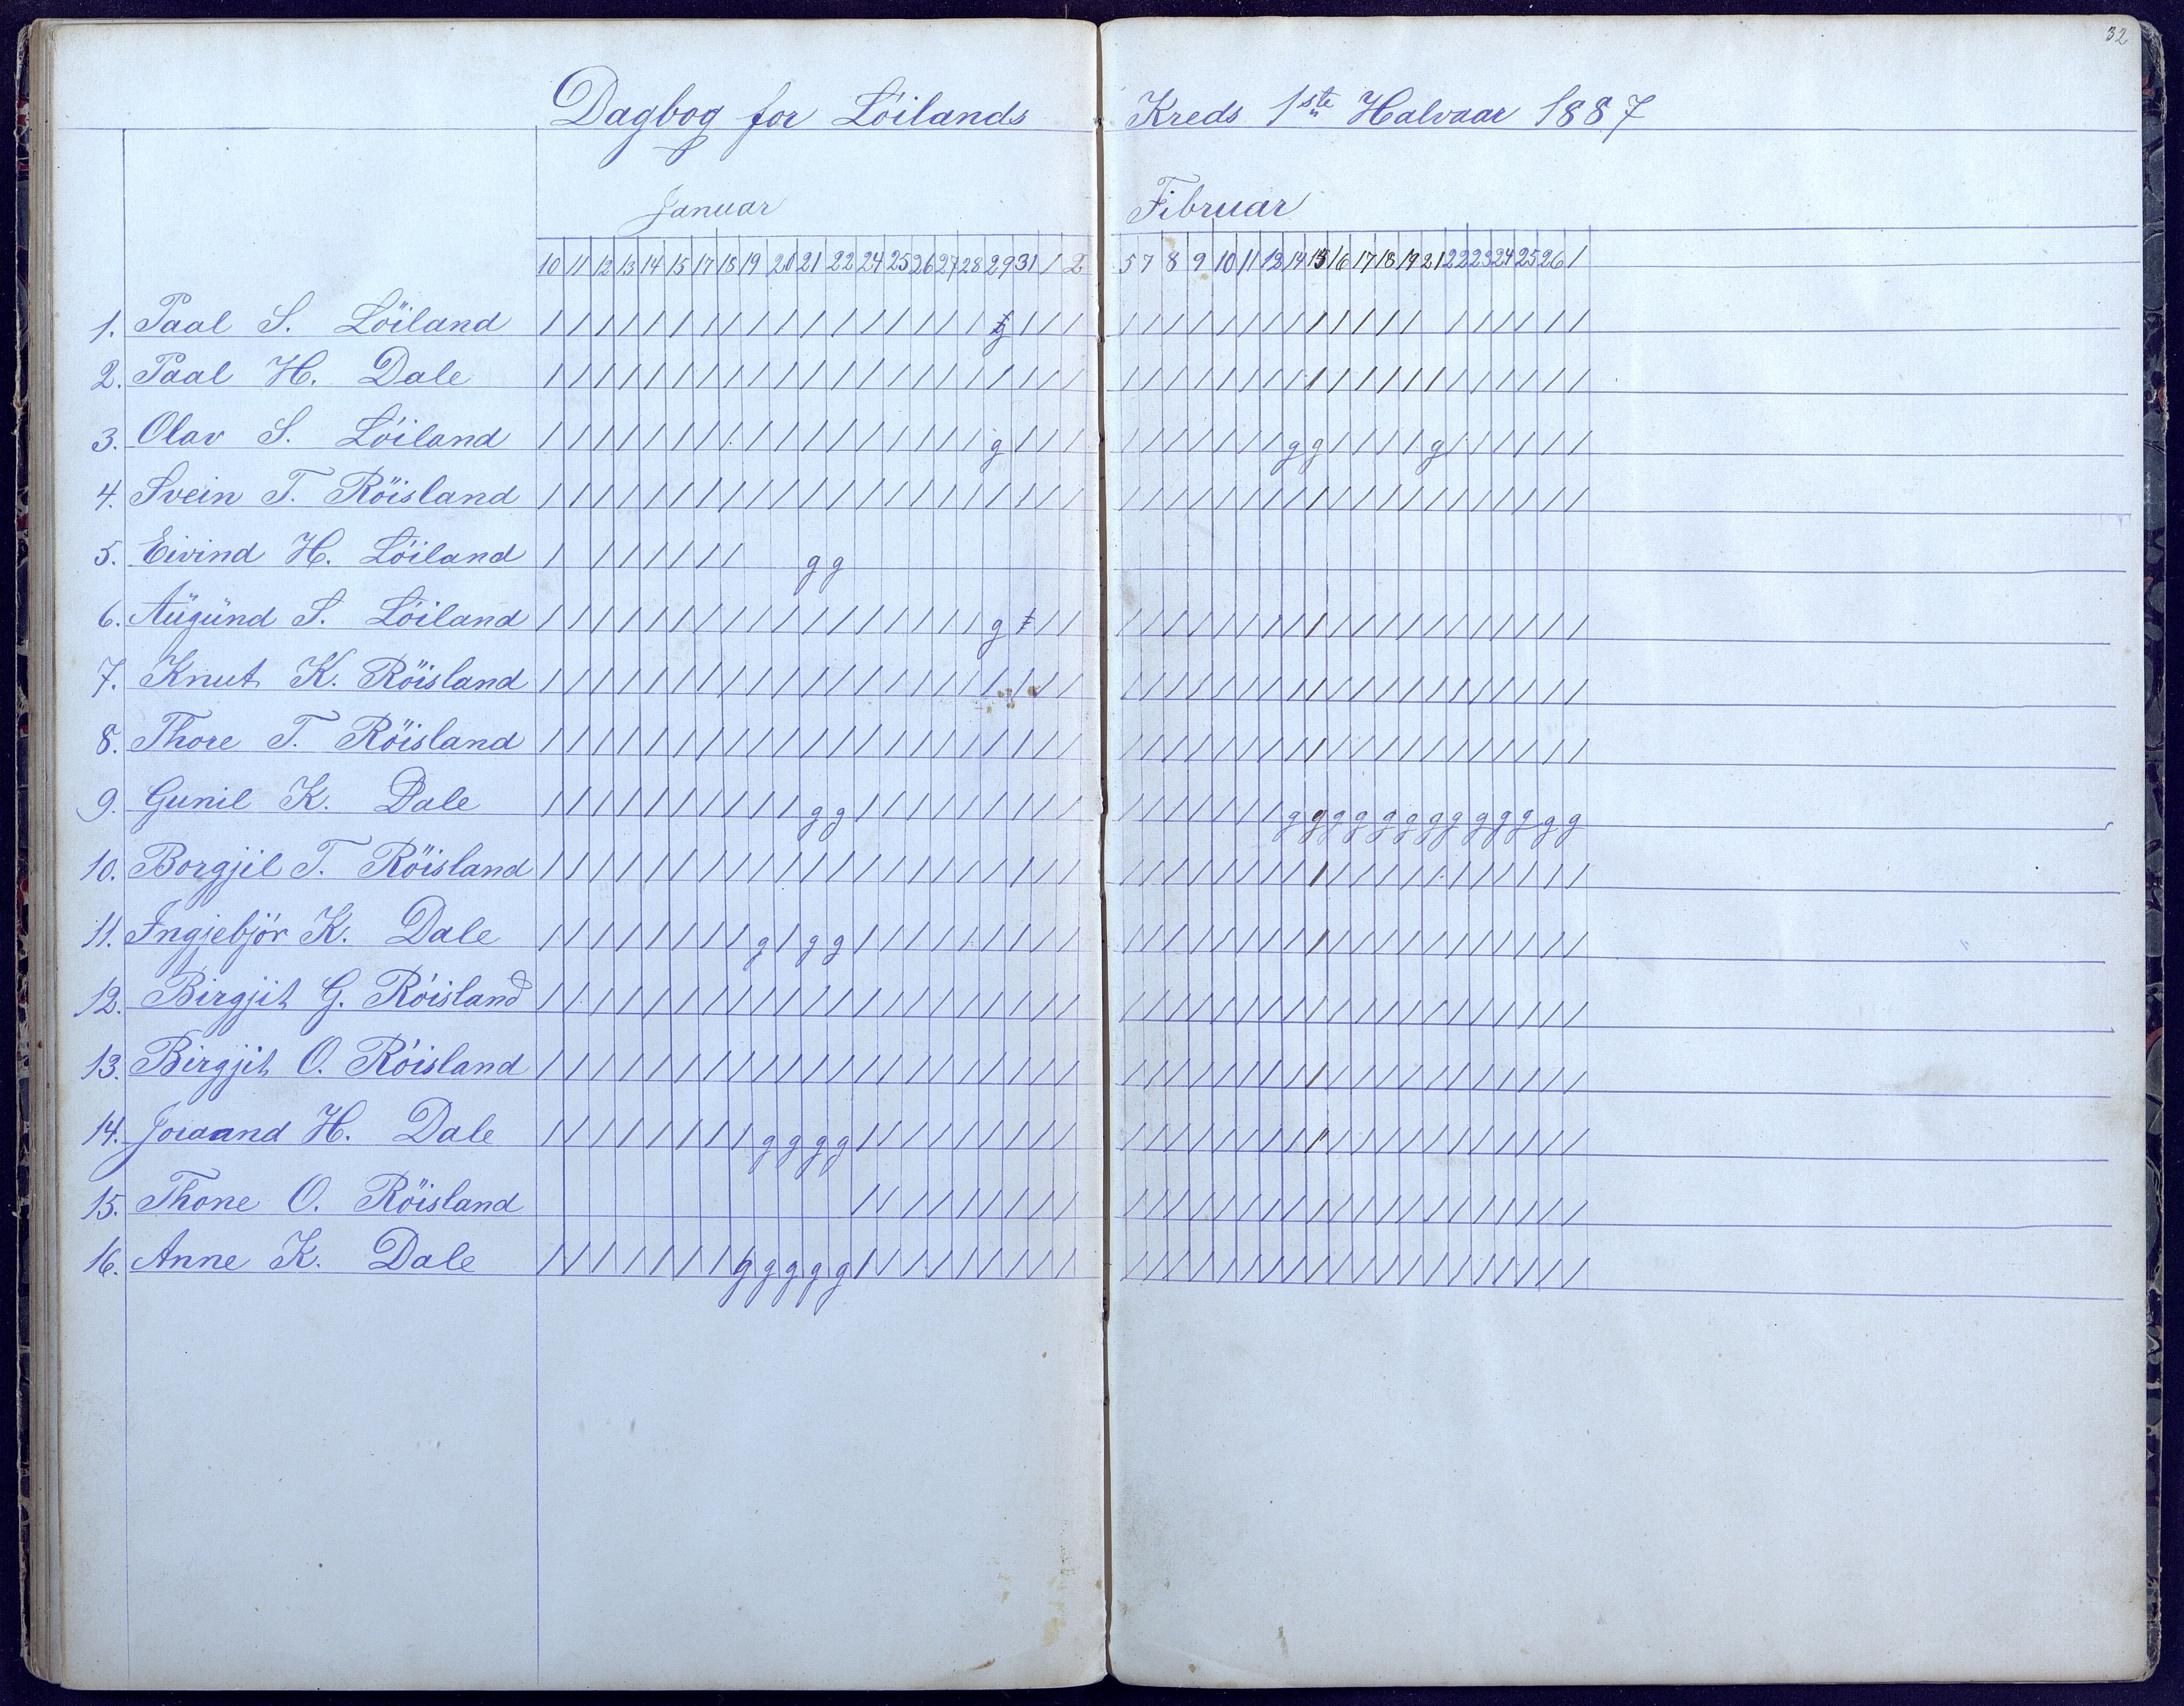 32
Dagbog for Löilands Kreds 1ste Halvaar 1887
Januar Fibruar
10 11 12 13 14 15 17 18 19 20 21 22 24 25 26 27 28 29 31 1 2 5 7 8 9 10 11 12 14 15 16 17 18 19 21 22 23 24 25 26 1
1. Paal S. Löiland / / / / / / / / / / / / / / / / / g / / / / / / / / / / / / / / / / / / / / / /
2. Paal H. Dale / / / / / / / / / / / / / / / / / / / / / / / / / / / / / / / / / / / / / / / / /
3. Olav S. Löiland / / / / / / / / / / / / / / / / / g / / / / / / / / / / g g / / / / g / / / / / /
4. Svein T. Röisland / / / / / / / / / / / / / / / / / / / / / / / / / / / / / / / / / / / / / / / / /
5. Eivind H. Löiland / / / / / / / g g
6. Aügünd S. Löiland / / / / / / / / / / / / / / / / / g / / / / / / / / / / / / / / / / / / / / / / /
7. Knut K. Röisland / / / / / / / / / / / / / / / / / / / / / / / / / / / / / / / / / / / / / / / / /
8. Thore T. Röisland / / / / / / / / / / / / / / / / / / / / / / / / / / / / / / / / / / / / / / / / /
9. Gunil K. Dale / / / / / / / / / / g g / / / / / / / / / / / / / / / / g g g g g g g g g g g g g
10. Borgjil T. Röisland / / / / / / / / / / / / / / / / / / / / / / / / / / / / / / / / / / / / / / / / /
11. Ingjebjör K. Dale / / / / / / / / g / g g / / / / / / / / / / / / / / / / / / / / / / / / / / / / /
12. Birgjit G. Röisland / / / / / / / / / / / / / / / / / / / / / / / / / / / / / / / / / / / / / / / / /
13. Birgjit O. Röisland / / / / / / / / / / / / / / / / / / / / / / / / / / / / / / / / / / / / / / / / /
14. Joraand H. Dale / / / / / / / / g g g g / / / / / / / / / / / / / / / / / / / / / / / / / / / / /
15. Thone O. Röisland / / / / / / / / / / / / / / / / / / / / / / / / / / / / /
16. Anne K. Dale / / / / / / / g g g g g / / / / / / / / / / / / / / / / / / / / / / / / / / / / /